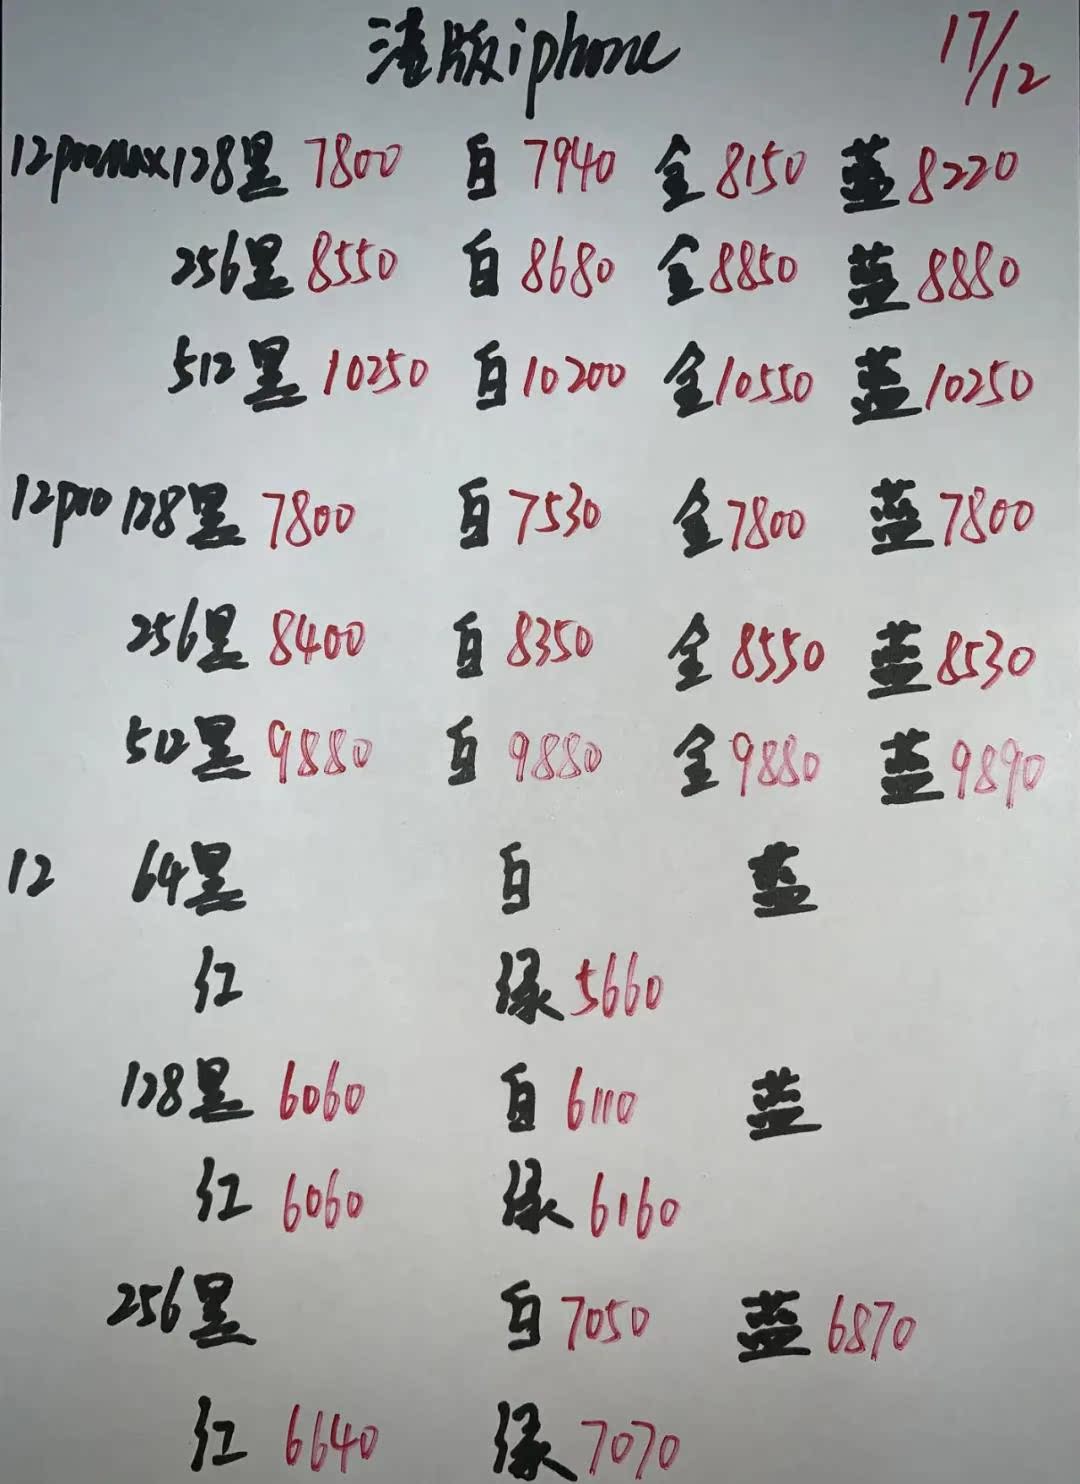 港版iphone 17/12
12promax128黑 7800 白 7940 金 8150 蓝 8220
256黑 8550 白 8680 金 8850 蓝 8880
512黑 10250 白 10200 金 10550 蓝 10250
12pro 128黑 7800 白 7530 金 7800 蓝 7800
256黑 8400 白 8350 金 8550 蓝 8530
512黑 9880 白 9880 金 9880 蓝 9890
12 64黑 白 蓝
红 绿 5660
128黑 6060 白 6110 蓝
红 6060 绿 6160
256黑 白 7050 蓝 6870
红 6640 绿 7070